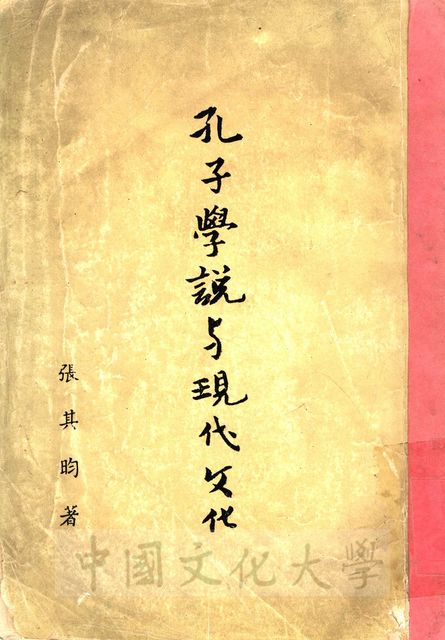 孔子學說与現代文化
張其昀著
中國文化大學